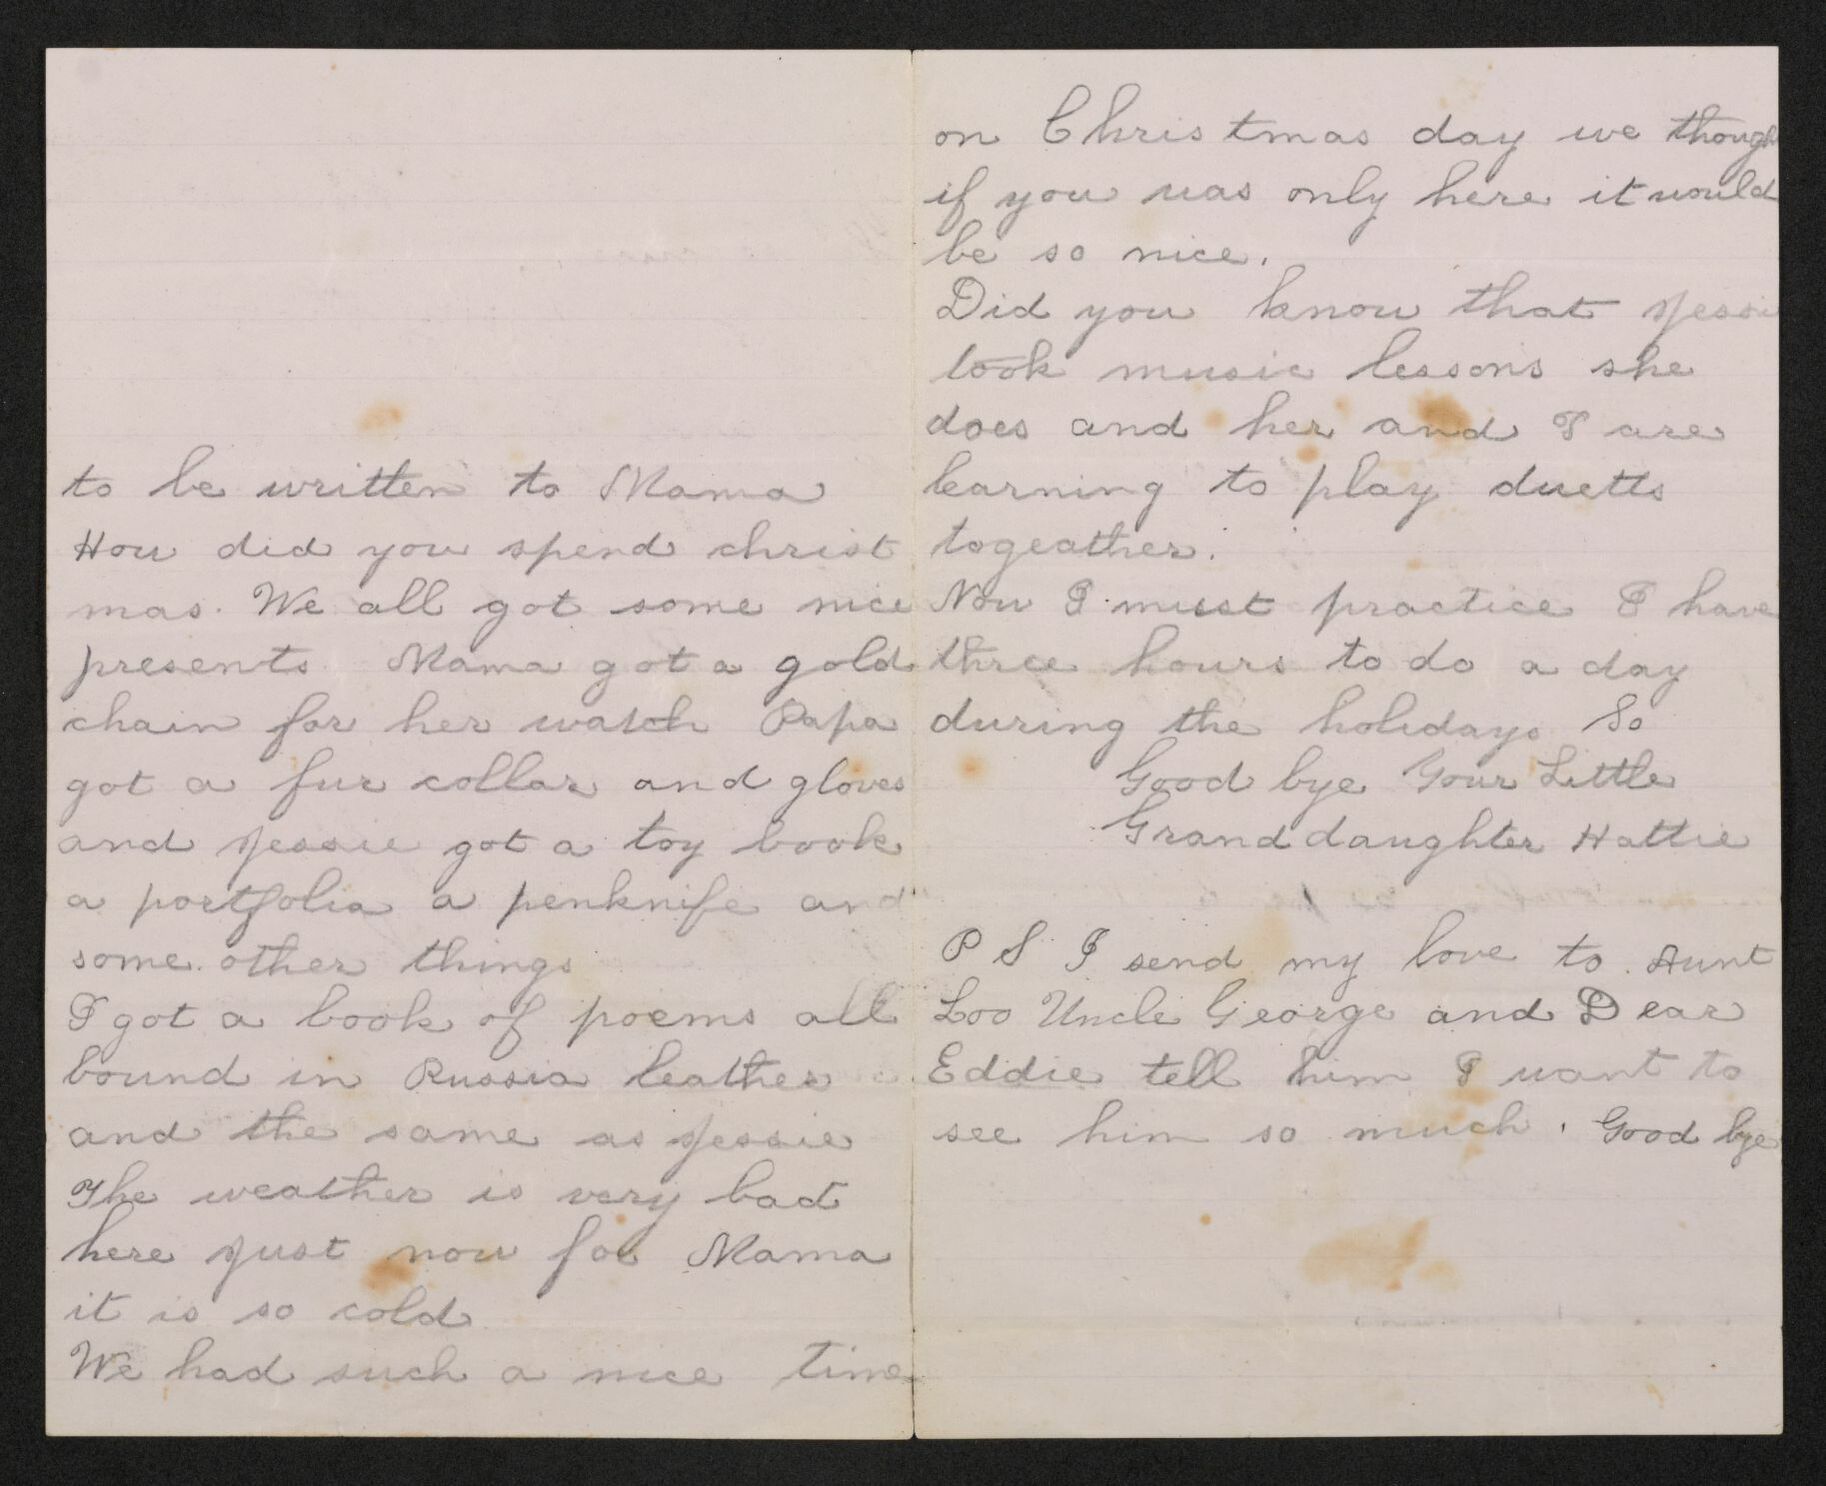 to be written to Mama
How did you spend christ
mas. We all got some nice
presents Mama got a gold
chain for her watch Papa
got a fur collar and gloves
and Jessie got a toy book
a portfolia a penknife and
some other things
I got a book of poems all
bound in Russia leather
and the same as Jessie
The weather is very bad
here just now for Mama
it is so cold
We had such a nice time
on Christmas day we though
if you was only here it would
be so nice.
Did you know that Jessie
took music lessons she
does and her and I are
learning to play duetts
togeather.
Now I must practice I have
three hours to do a day
during the holidays So
Good bye Your Little
Grand daughter Hattie
P S I send my love to Aunt
Loo Uncle George and Dear
Eddie tell him I want to
see him so much. Good bye